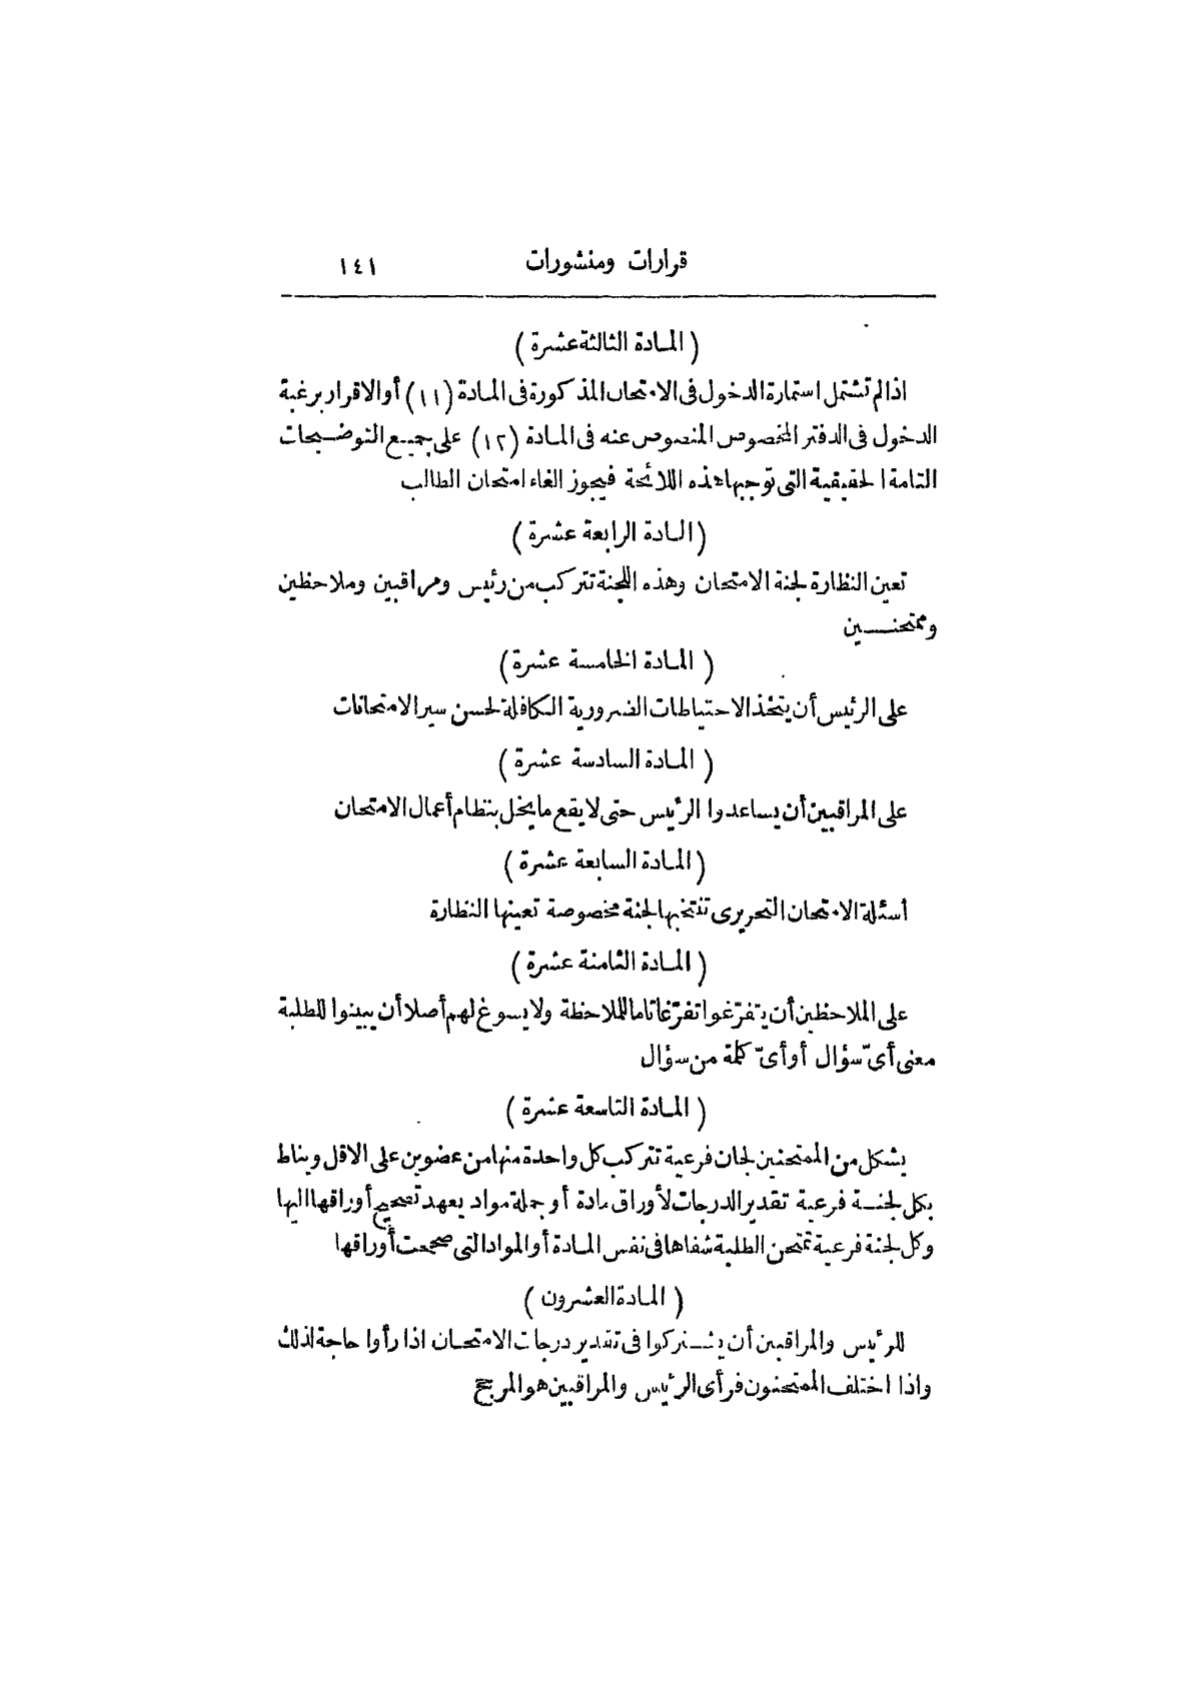 قرارات ومنشورات ١٤١
( المادة الثالثة عشرة )
اذا لم تشتمل استمارة الدخول فى الامتحان المذكورة فى المادة (١١) أو الاقرار برغبة
الدخول فى الدفتر المخصوص المنصوص عنه فى المادة (١٢) على جميع التوضيحات
التامة الحقيقية التى توجبها هذه اللائحة فيجوز الغاء امتحان الطالب
( المادة الرابعة عشرة )
تعين النظارة لجنة الامتحان وهذه اللجنة تتركب من رئيس ومراقبين وملاحظين
وممتحنين
( المادة الخامسة عشرة )
على الرئيس أن يتخذ الاحتياطات الضرورية الكافلة لحسن سير الامتحانات
( المادة السادسة عشرة )
على المراقبين أن يساعدوا الرئيس حتى لا يقع ما يخل بنظام أعمال الامتحان
( المادة السابعة عشرة )
أسئلة الامتحان التحريرى تنتخبها لجنة مخصوصة تعينها النظارة
( المادة الثامنة عشرة )
على الملاحظين أن يتفرّغوا تفرّغا تاما للملاحظة ولا يسوغ لهم أصلا أن يبينوا للطلبة
معنى أىّ سؤال أو أىّ كلمة من سؤال
( المادة التاسعة عشرة )
يشكل من الممتحنين لجان فرعية تتركب كل واحدة منها من عضوين على الاقل ويناط
بكل لجنة فرعية تقدير الدرجات لأوراق مادة أو جملة مواد يعهد تصحيح أوراقها اليها
وكل لجنة فرعية تمتحن الطلبة شفاها فى نفس المادة أو المواد التى صححت أوراقها
( المادة العشرون )
للرئيس والمراقبين أن يشتركوا فى تقدير درجات الامتحان اذا رأوا حاجة لذلك
واذا اختلف الممتحنون فرأى الرئيس والمراقبين هو المرجح